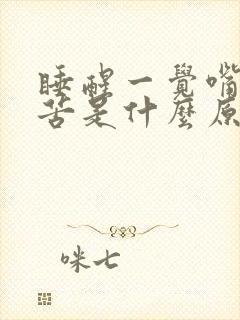 睡醒一覺嘴
苦是什麼原
咪七